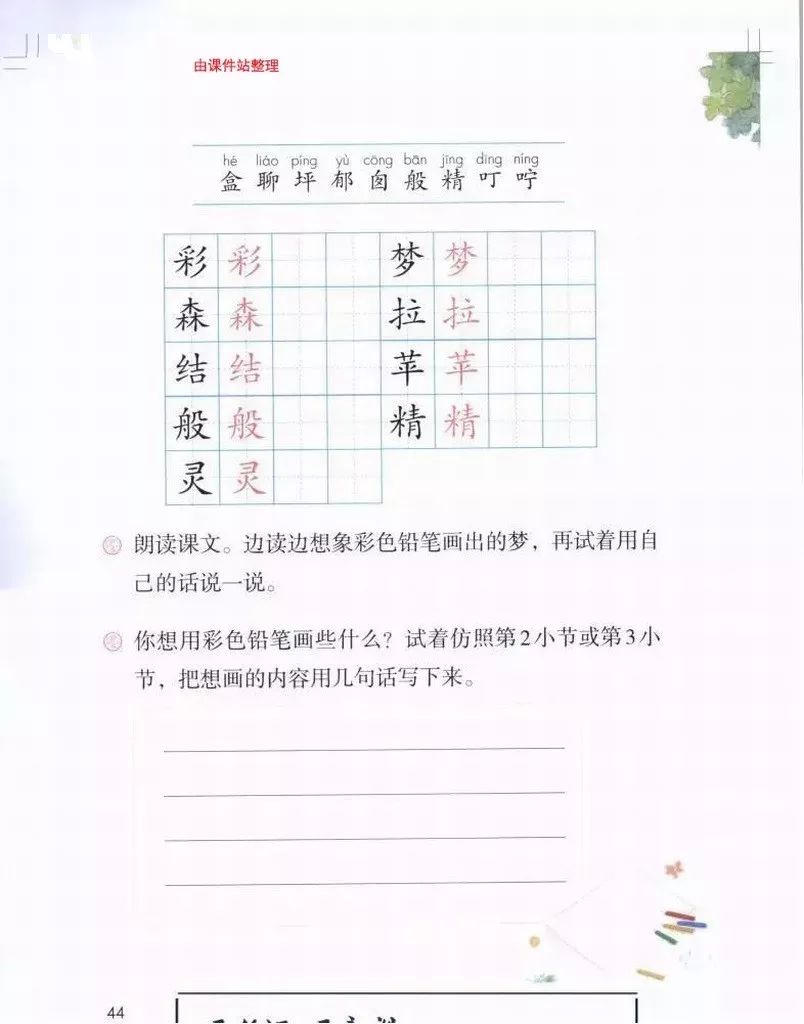 由课件站整理
hé liáo píng yù cōng bān jīng dīng níng
盒 聊 坪 郁 囱 般 精 叮 咛
彩 彩 梦 梦
森 森 拉 拉
结 结 苹 苹
般 般 精 精
灵 灵
朗读课文。边读边想象彩色铅笔画出的梦，再试着用自
己的话说一说。
你想用彩色铅笔画些什么？试着仿照第2小节或第3小
节，把想画的内容用几句话写下来。
44